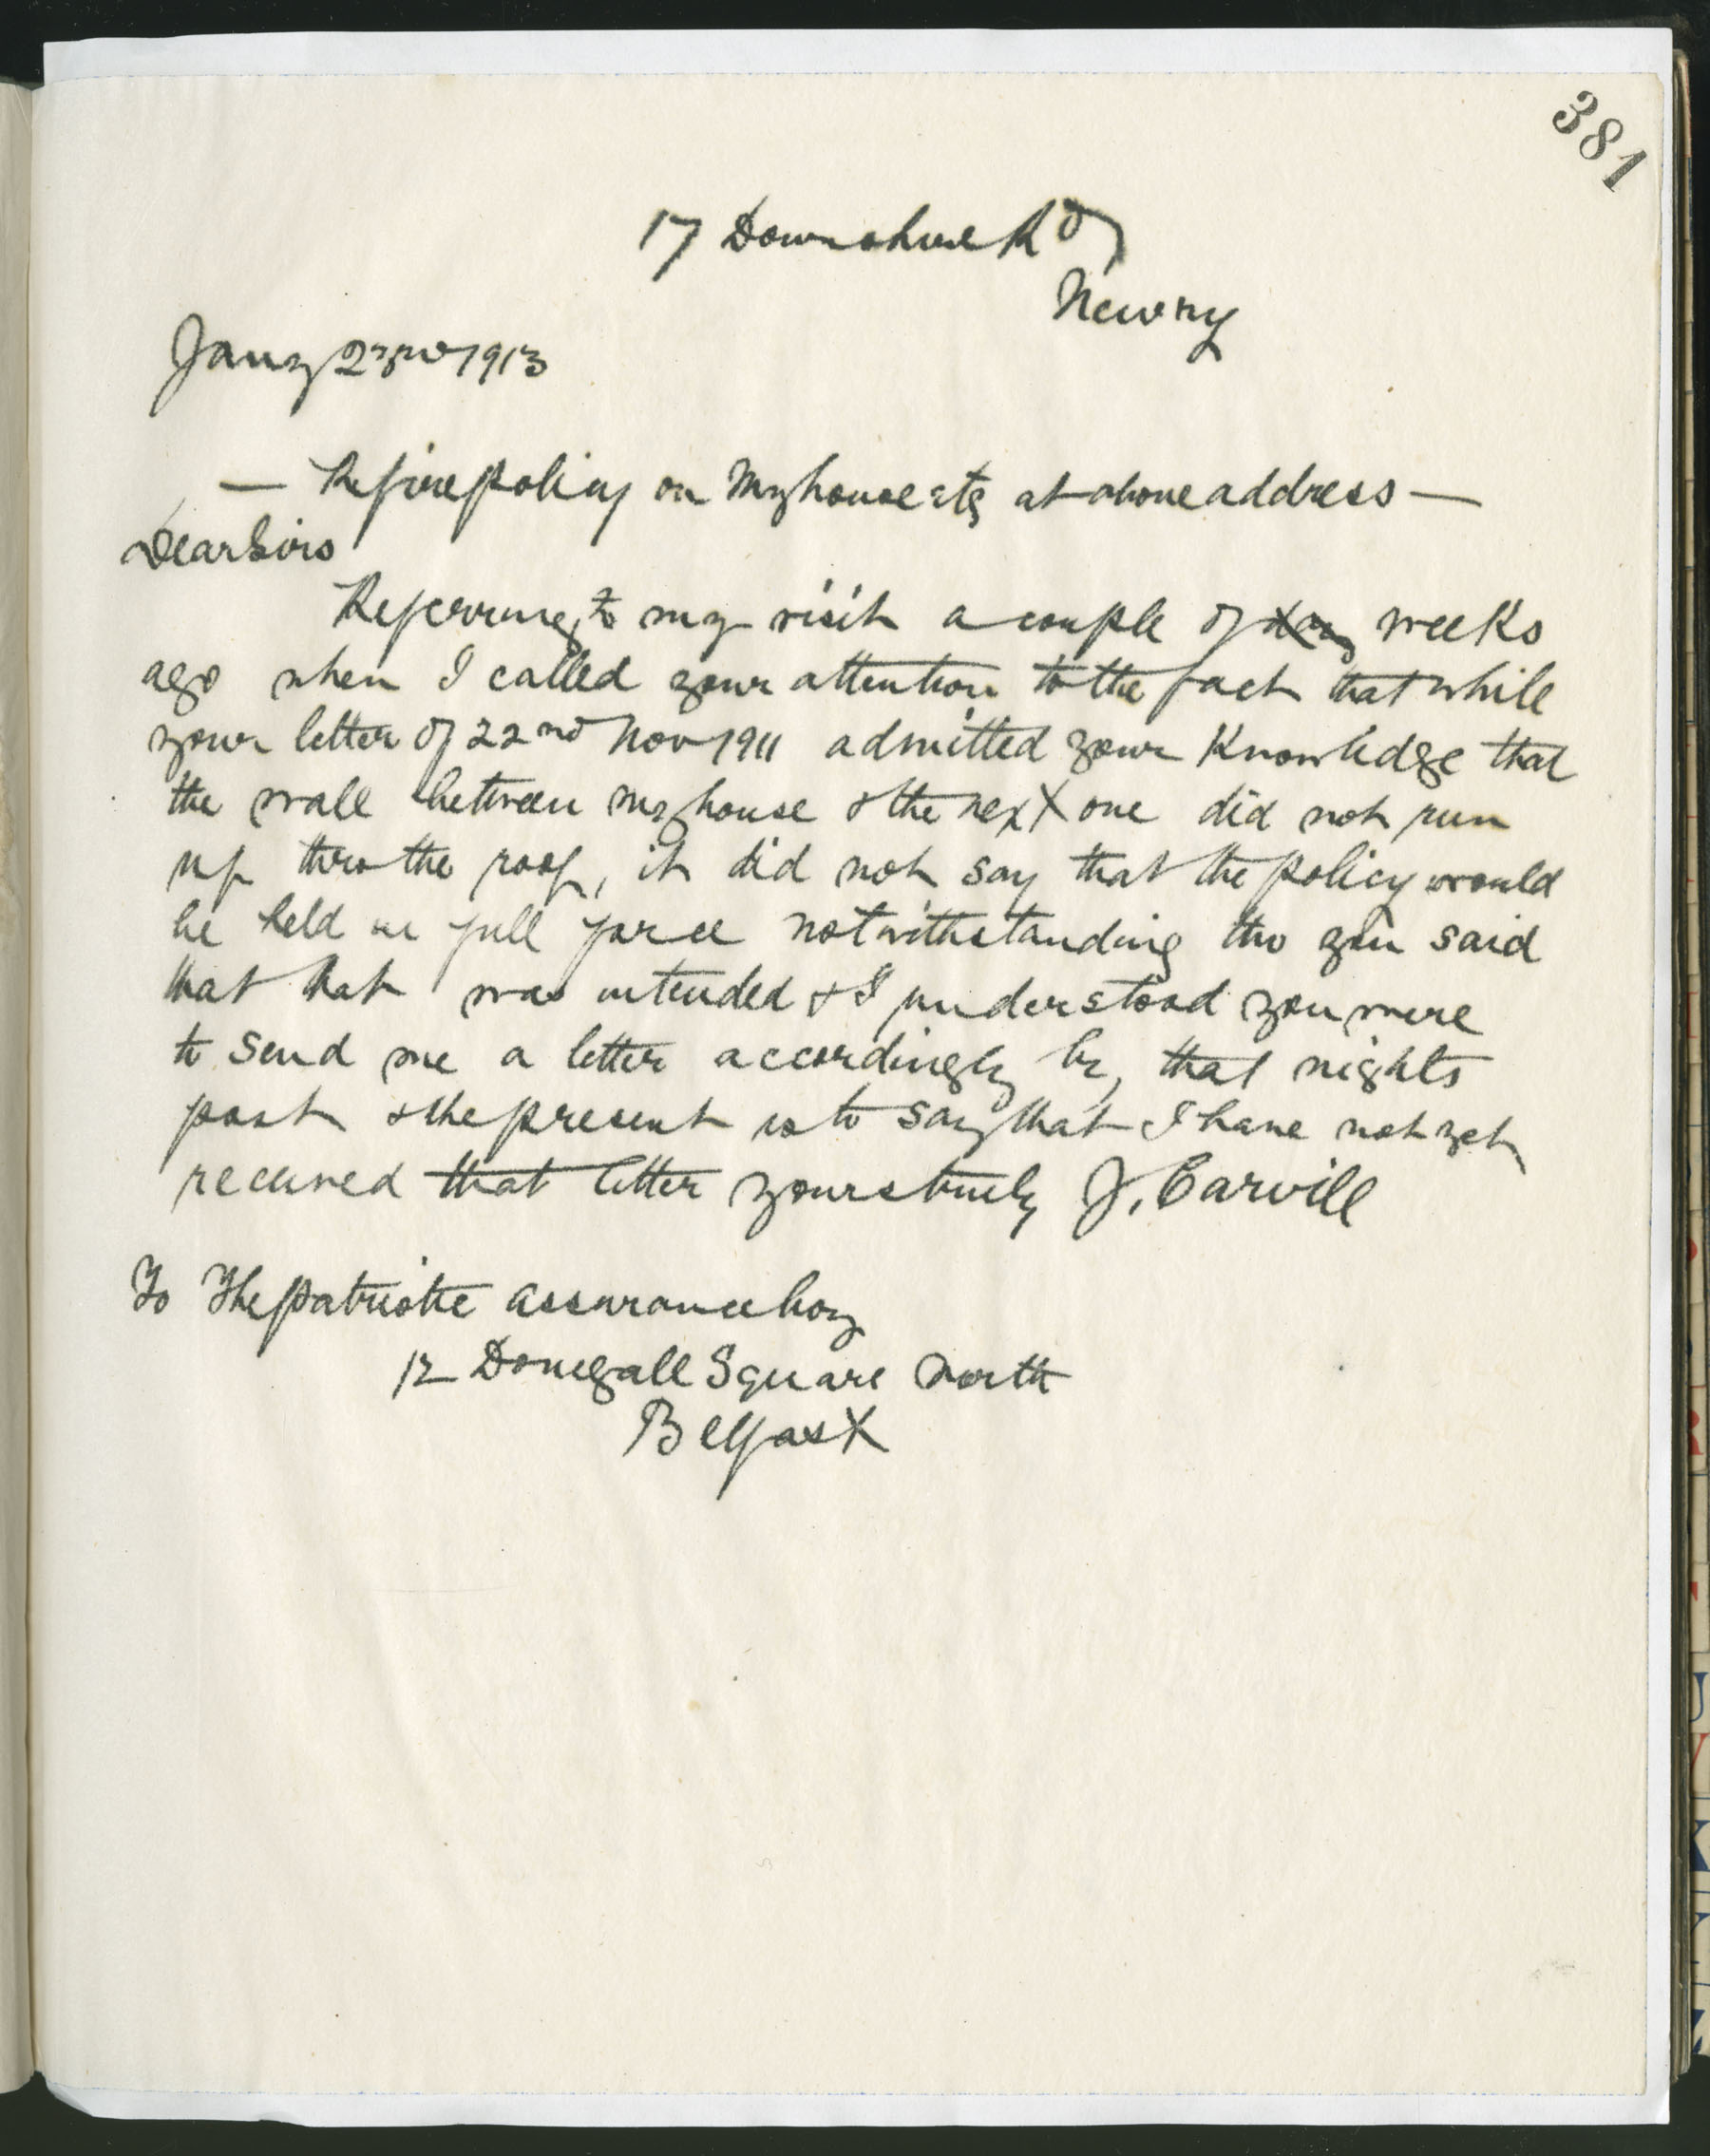 381
17 Downshire Rd
Newry
Jany 23rd 1913
— Re fire policy on my house etc at above address —
Dear Sirs
Referring to my visit a couple of weeks
ago when I called your attention to the fact that while
your letter of 22nd Nov 1911 admitted your knowledge that
the wall between my house & the next one did not run
up thro the roof, it did not say that the policy would
be held in full force notwithstanding tho you said
that that was intended & I understood you were
to send me a letter accordingly by that nights
post & the present is to say that I have not yet
received that letter yours truly J. Carvill
To The Patriotic Assurance Coy
12 Donegall Square North
Belfast